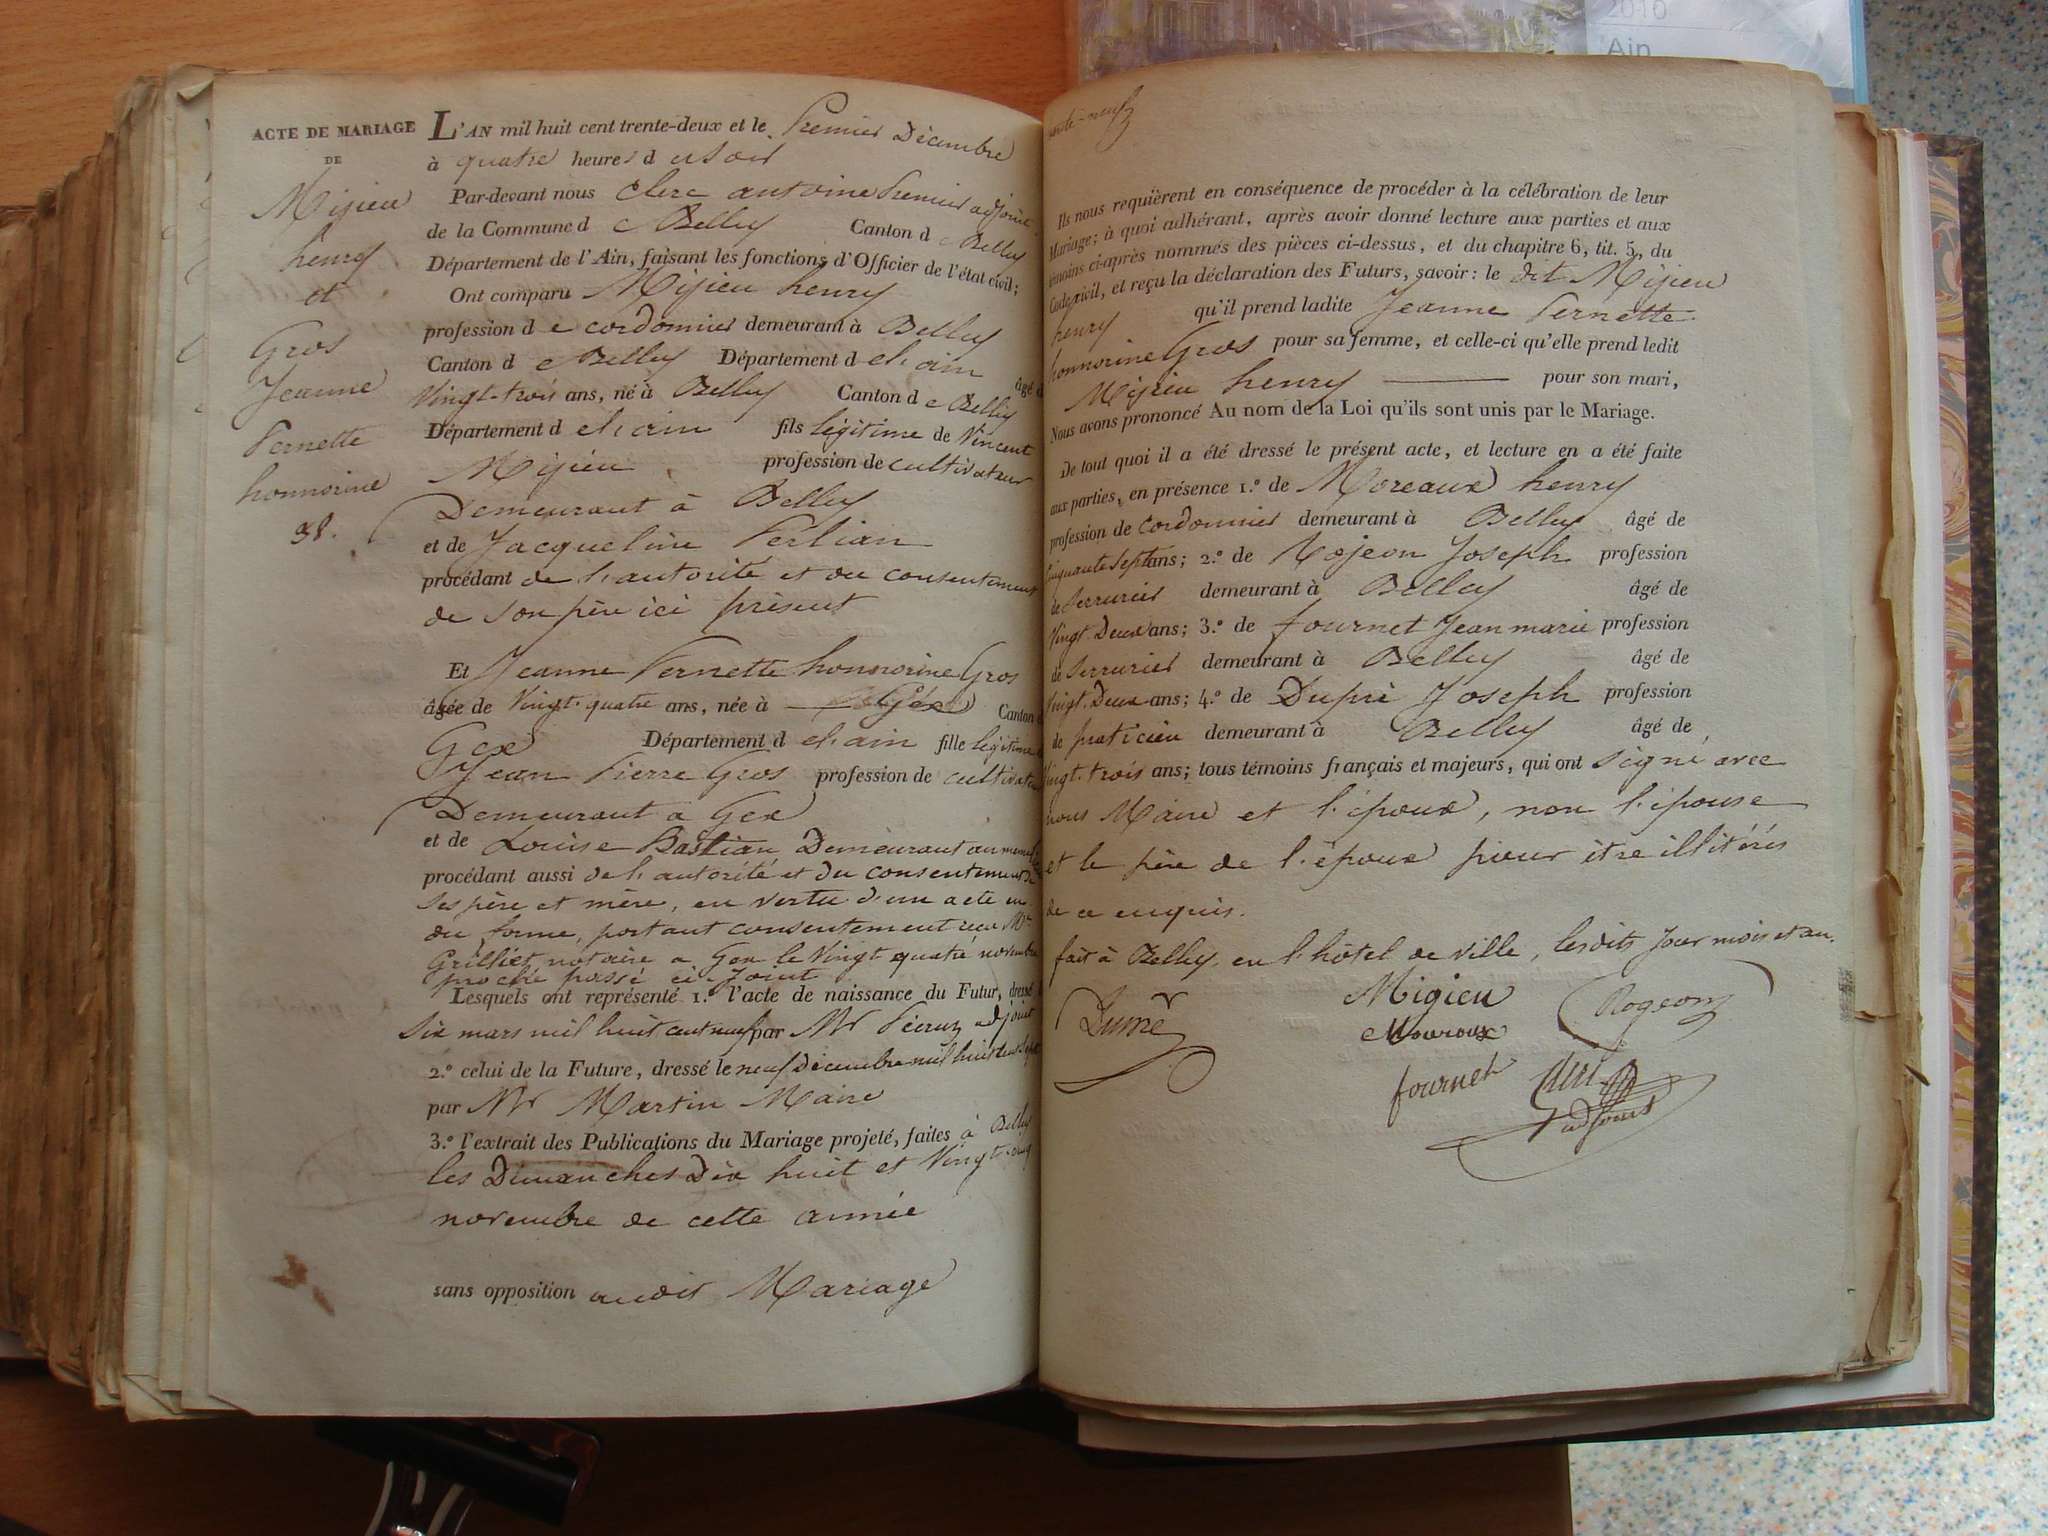 2010
Ain
ACTE DE MARIAGE
DE
Migieu
henry
et
Gros
Jeanne
Pernette
honnorine
38.
L'AN mil huit cent trente-deux et le Premier Décembre
à quatre heures d u Soir
Par-devant nous Clerc antoine Premier adjoint
de la Commune d e Belley Canton d e Belley
Département de l'Ain, faisant les fonctions d'Officier de l'état civil;
Ont comparu Migieu henry
profession d e cordonnier demeurant à Belley
Canton d e Belley Département d el'ain âgé d
Vingt-trois ans, né à Belley Canton d e Belley
Département d el'ain fils légitime de Vincent
Migieu profession de cultivateur
Demeurant à Belley
et de Jacqueline Perlian
procédant de l'autorité et du consentement
de son père ici présent
Et Jeanne Pernette honnorine Gros
âgée de Vingt-quatre ans, née à Gex Canton d
Gex Département d el'ain fille légitime
Jean Pierre Gros profession de cultivateur
Demeurant a Gex
et de Louise Bastian Demeurant au meme
procédant aussi de l'autorité et du consentement de
ses père et mère, en vertu d'un acte en
du forme, portant consentement recu Me
Grilliet notaire a Gex le Vingt quatre novembre
proche passé ci-joint
Lesquels ont représenté 1.° l'acte de naissance du Futur, dressé
Six mars mil huit cent neuf par Mr adjoint
2.° celui de la Future, dressé le neuf Décembre mil huit cent sept
par Mr Martin Maire
3.° l'extrait des Publications du Mariage projeté, faites à Belley
les Dimanches Dix huit et Vingt-cinq
novembre de cette année
sans opposition audit Mariage
Ils nous requièrent en conséquence de procéder à la célébration de leur
Mariage; à quoi adhérant, après avoir donné lecture aux parties et aux
témoins ci-après nommés des pièces ci-dessus, et du chapitre 6, tit. 5, du
Code civil, et reçu la déclaration des Futurs, savoir: le dit Migieu
henry qu'il prend ladite Jeanne Pernette
honnorine Gros pour sa femme, et celle-ci qu'elle prend ledit
Migieu henry pour son mari,
Nous avons prononcé Au nom de la Loi qu'ils sont unis par le Mariage.
De tout quoi il a été dressé le présent acte, et lecture en a été faite
aux parties, en présence 1.° de Moreaux henry
profession de cordonnier demeurant à Belley âgé de
Cinquante Sept ans; 2.° de Rojeon Joseph profession
de Serrurier demeurant à Belley âgé de
Vingt-Deux ans; 3.° de fournet Jean marie profession
de Serrurier demeurant à Belley âgé de
Vingt-Deux ans; 4.° de Dupré Joseph profession
de praticien demeurant à Belley âgé de
Vingt-trois ans; tous témoins français et majeurs, qui ont signé avec
nous Maire et l'époux, non l'épouse
et le père de l'époux pour être illitérés
de ce enquis.
fait à Belley, en l'hôtel de ville, lesdits jour mois et an.
Migieu
Rogeon
Mouroux
fournet
adjoint